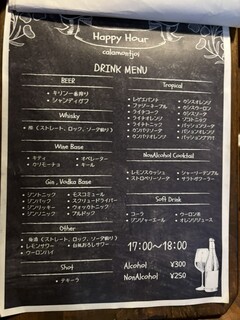 Happy Hour
calamontjos
DRINK MENU
BEER
・キリン一番搾り
・シャンディガフ
Whisky
・陸（ストレート、ロック、ソーダ割り）
Wine Base
・キティ ・オペレーター
・カリモーチョ ・キール
Gin , Vodka Base
・ジントニック ・モスコミュール
・ジンバック ・スクリュードライバー
・ジンリッキー ・ウォッカトニック
・ジンソニック ・ブルドッグ
Other
（ストレート、ロック、ソーダ割り）
・レモンサワー
・ウーロンハイ
Shot
・テキーラ
Tropical
・レゲエパンチ ・カシスオレンジ
・ファジーネーブル ・カシスウーロン
・ライチコーク ・カシスソーダ
・ライチオレンジ ・ゾコトニック
・ライチトニック ・パッションソーダ
・カンパリソーダ ・パッションオレンジ
・カンパリオレンジ ・パッションアブサン
NonAlcohol Cocktail
・レモンスカッシュ ・シャーリーテンプル
・ストロベリーソーダ ・サラトガクーラー
Soft Drink
・コーラ ・ウーロン茶
・ジンジャーエール ・オレンジジュース
17:00〜18:00
Alcohol ¥300
NonAlcohol ¥250